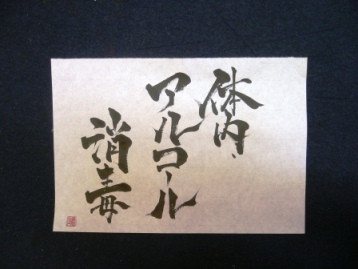 体内、
アルコール
消毒